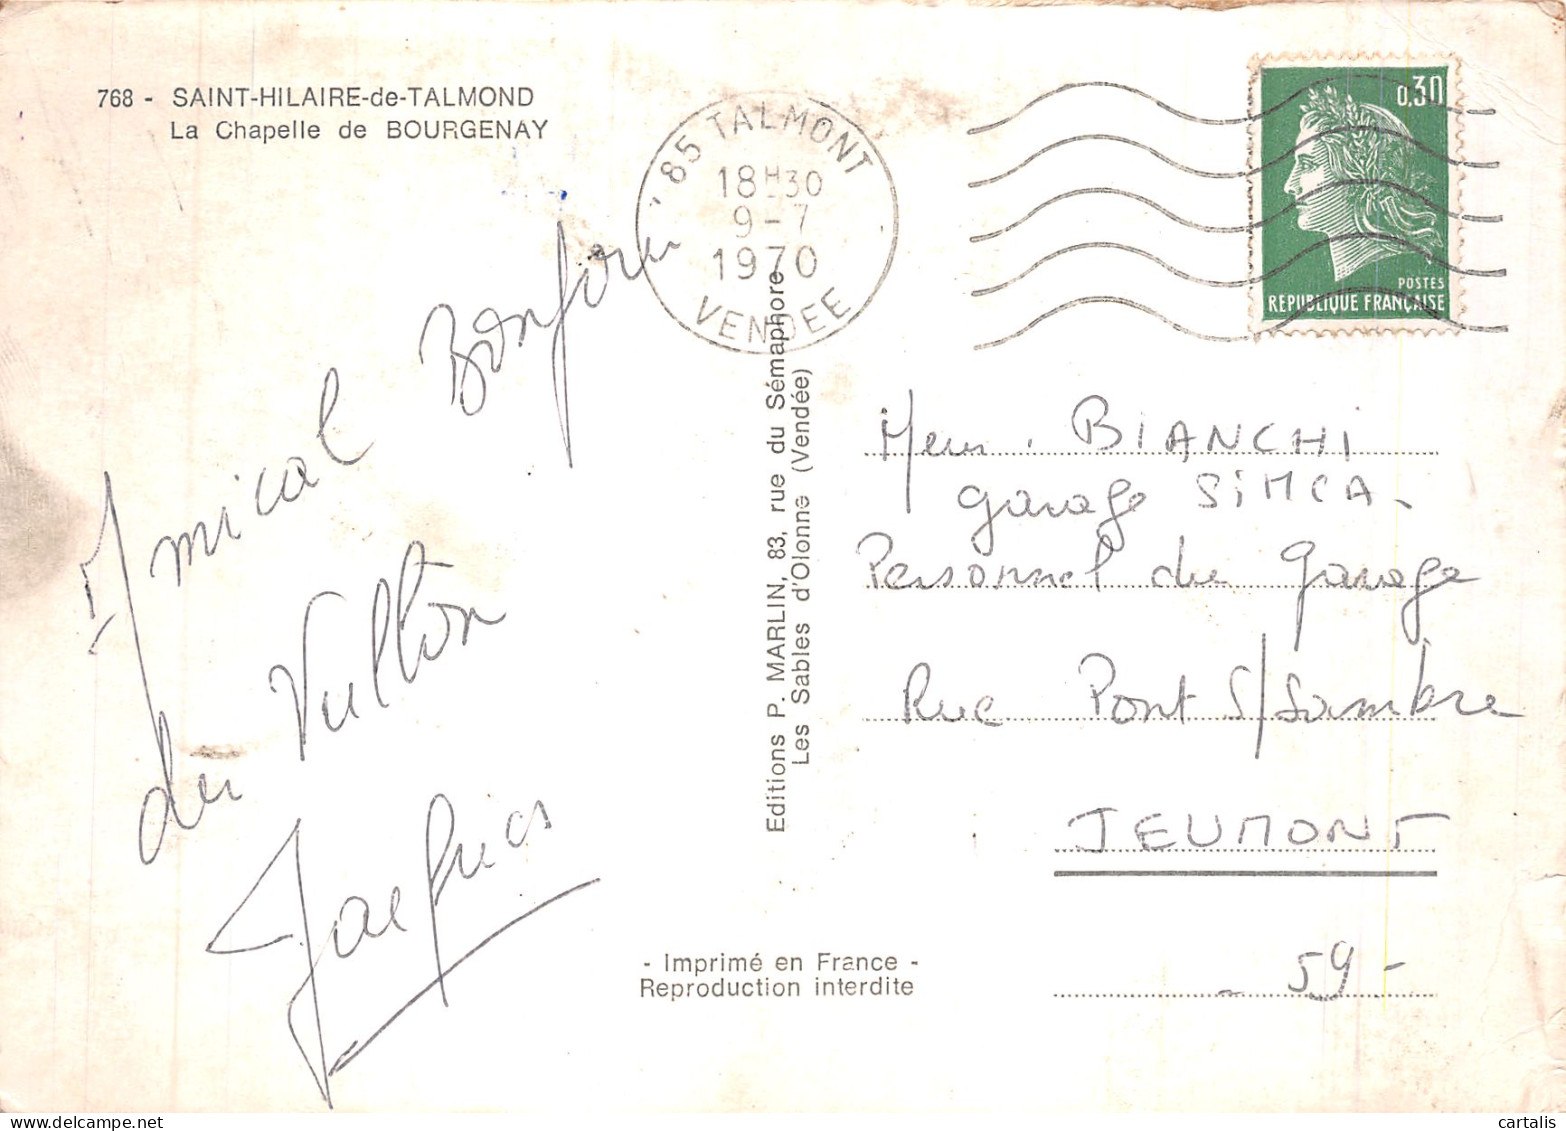 768 - SAINT-HILAIRE-de-TALMOND
La Chapelle de BOURGENAY
85 TALMONT
18H30
9-7
1970
VENDEE
0,30
POSTES
REPUBLIQUE FRANÇAISE
Amical Bonjour
du
Jacques
Editions P. MARLIN, 83, rue du Sémaphore
Les Sables d'Olonne (Vendée)
BIANCHI
garage SIMCA -
Personnel du garage
Rue Pont S/Sambre
JEUMONT
- 59 -
- Imprimé en France -
Reproduction interdite
cartalis